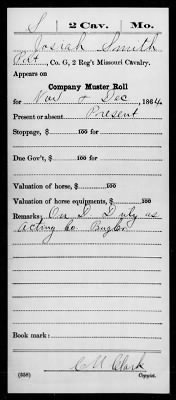 S | 2 Cav. | Mo.
Josiah Smith
Pvt, Co. G, 2 Reg't Missouri Cavalry.
Appears on
Company Muster Roll
for Nov & Dec, 1864.
Present or absent Present
Stoppage, $ 100 for
Due Gov't, $ 100 for
Valuation of horse, $ 100
Valuation of horse equipments, $ 100
Remarks: On D. Duty as
Acting Co. Bugler
Book mark:
C M Clark
(358) Copyist.